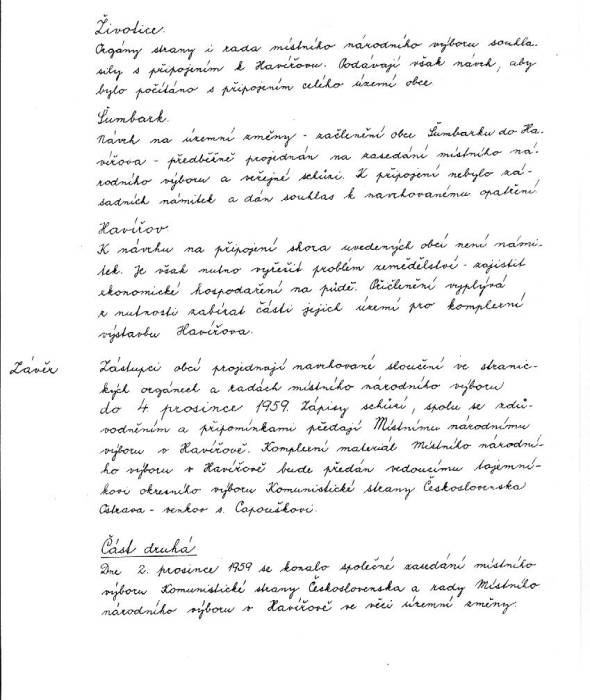 Životice.
Orgány strany i rada místního národního výboru souhla-
sily s připojením k Havířovu. Podávají však návrh, aby
bylo počítáno s připojením celého území obce
Šumbark.
Návrh na územní změny - začlenění obce Šumbarku do Ha-
vířova - předběžně projednán na zasedání místního ná-
rodního výboru a veřejné schůzi. K připojení nebylo zá-
sadních námitek a dán souhlas k navrhovanému opatření
Havířov
K návrhu na připojení shora uvedených obcí není námi-
tek. Je však nutno vyřešit problém zemědělství - zajistit
ekonomické hospodaření na půdě. Přičlenění vyplývá
z nutnosti zabírat části jejich území pro komplexní
výstavbu Havířova.
Závěr
Zástupci obcí projednají navrhované sloučení ve stranic-
kých orgánech a radách místního národního výboru
do 4 prosince 1959. Zápisy schůzí, spolu se zdů-
vodněním a připomínkami předají Místnímu národnímu
výboru v Havířově. Komplexní materiál Místního národní-
ho výboru v Havířově bude předán vedoucímu tajemní-
kovi okresního výboru Komunistické strany Československa
Ostrava - venkov s. Capouškovi.
Část druhá
Dne 2. prosince 1959 se konalo společné zasedání místního
výboru Komunistické strany Československa a rady Místního
národního výboru v Havířově ve věci územní změny.